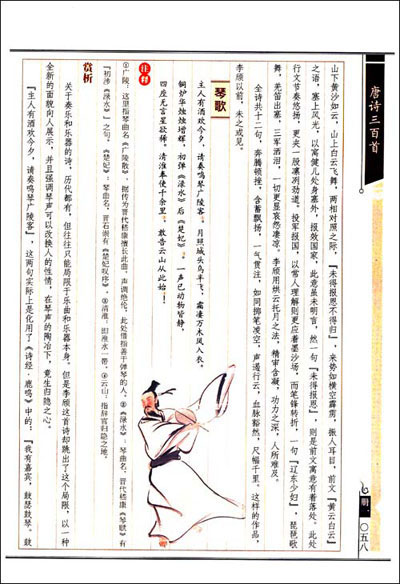 唐诗三百首
册一
〇五八
山下黄沙如云，山上白云飞舞，两相对照之际，『未得报恩不得归』，来势如横空霹雳，振人耳目，前文『黄云白云』
之语，塞上风光，以寓健儿处身塞外，报效国家，此意虽未明言，然一句『未得报恩』，则是前文寓意有着落处。此处
行文节奏悠扬，更夹一股凛冽劲道。投军报国，以常人理解则更应着墨沙场，而笔锋转折，一句『辽东少妇』，琵琶歌
舞，羌笛出塞，三军洒泪，一切更显哀怨凄凉。李颀用烘云托月之法，精审含凝，功力之深，人所难及。
全诗共十二句，奔腾顿挫，含蓄飘扬，一气贯注，如同掷笔凌空，声遏行云，血脉豁然，尺幅千里。这样的作品，
李颀以前，未之或见。
琴歌
主人有酒欢今夕，请奏鸣琴广陵客。月照城头乌半飞，霜凄万木风入衣。
铜炉华烛烛增辉，初弹《渌水》后《楚妃》。一声已动物皆静，
四座无言星欲稀。清淮奉使千余里，敢告云山从此始！
注释
①广陵：这里指琴曲名《广陵散》。据传为晋代嵇康擅长此曲，声调绝伦，此处借指善于弹琴的人。②《渌水》：琴曲名，晋代嵇康《琴赋》有
『初涉《渌水》』之句。《楚妃》：琴曲名，晋石崇有《楚妃叹序》。③清淮：即淮水一带。④云山：指辞官归隐之地。
赏析
关于奏乐和乐器的诗，历代都有，但往往只能局限于乐曲和乐器本身。但是李颀这首诗却跳出了这个局限，以一种
全新的面貌向人展示，并且强调琴声可以改换人的性情，在琴声的陶冶下，竟生归隐之心。
『主人有酒欢今夕，请奏鸣琴广陵客』，这两句实际上是化用了《诗经·鹿鸣》中的：『我有嘉宾，鼓瑟鼓琴。鼓